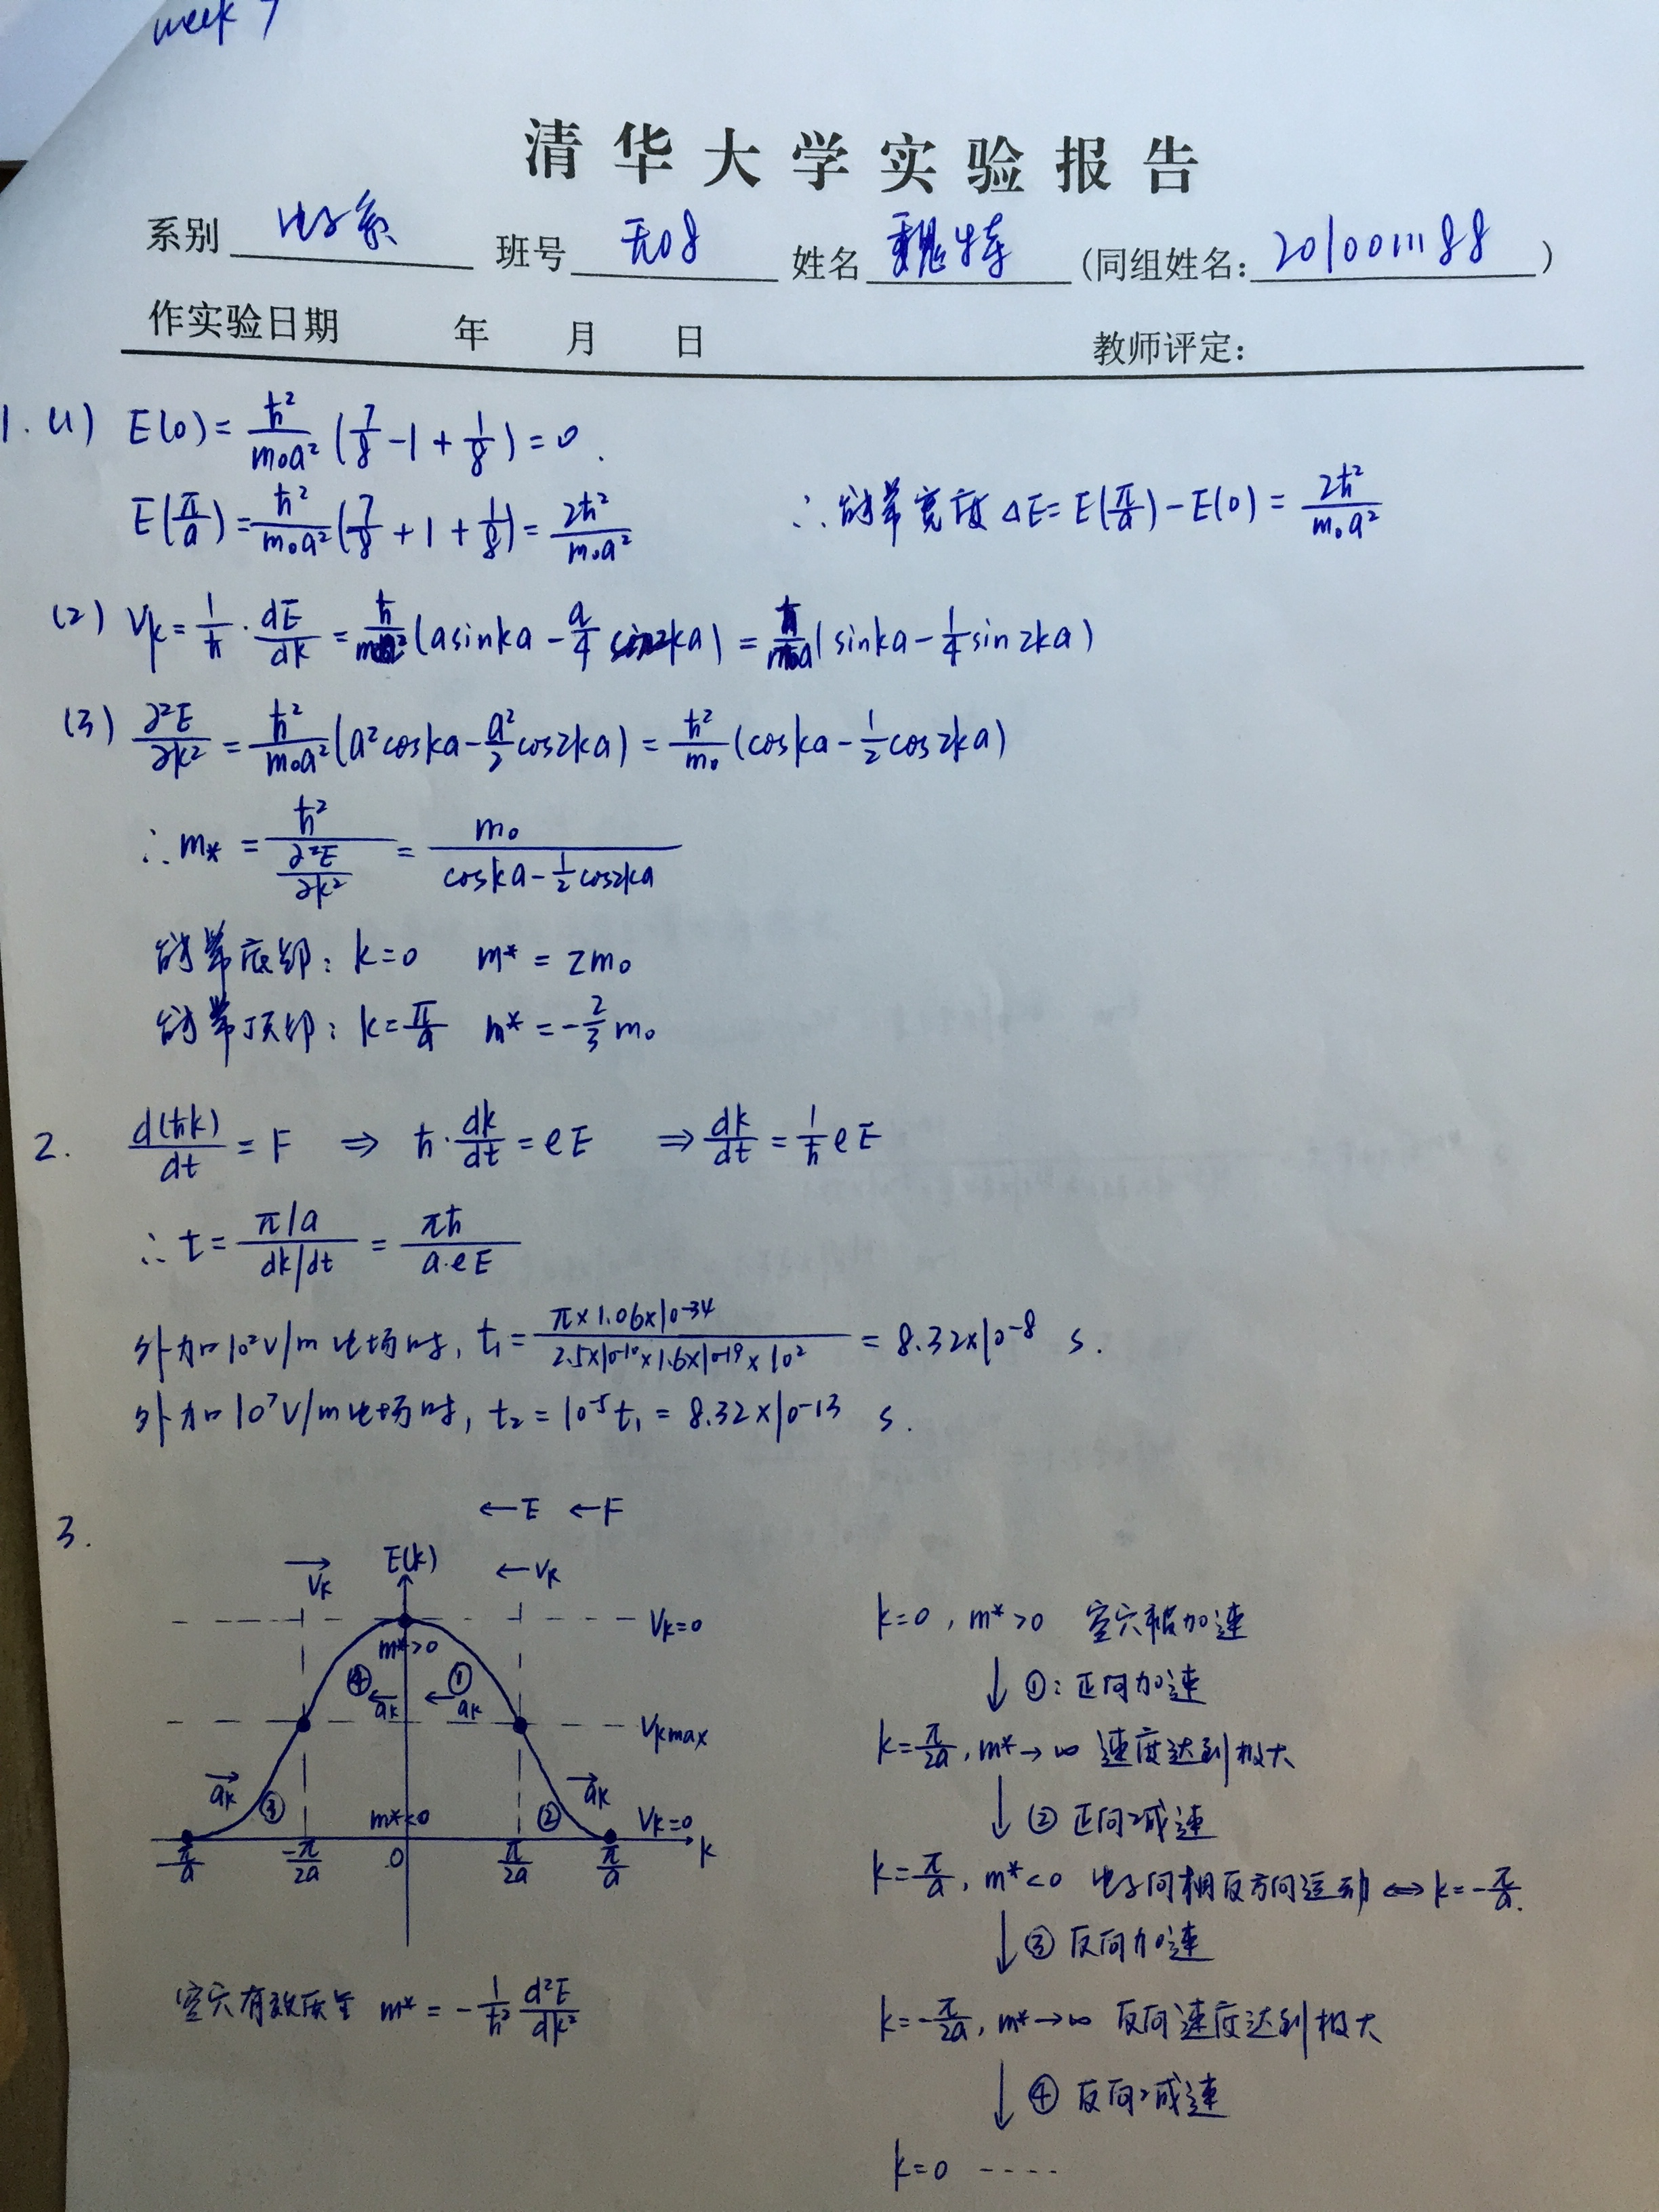 week 7
清华大学实验报告
系别 电子系 班号 无08 姓名 魏特 (同组姓名: 2010011188 )
作实验日期 年 月 日 教师评定:
1. (1) E(0) = ħ²/(m₀a²) (7/8 - 1 + 1/8) = 0.
E(π/a) = ħ²/(m₀a²) (7/8 + 1 + 1/8) = 2ħ²/(m₀a²) ∴ 能带宽度 ΔE = E(π/a) - E(0) = 2ħ²/(m₀a²)
(2) Vk = 1/ħ · dE/dk = ħ/(m₀a²) (a sinka - a/4 sin2ka) = ħ/(m₀a) (sinka - 1/4 sin2ka)
(3) ∂²E/∂k² = ħ²/(m₀a²) (a² coska - a²/2 cos2ka) = ħ²/m₀ (coska - 1/2 cos2ka)
∴ m* = ħ²/(∂²E/∂k²) = m₀/(coska - 1/2 cos2ka)
能带底部: k=0 m* = 2m₀
能带顶部: k=π/a m* = -2/3 m₀
2. d(ħk)/dt = F ⇒ ħ · dk/dt = eE ⇒ dk/dt = 1/ħ eE
∴ t = (π/a)/(dk/dt) = πħ/(a·eE)
外加10²V/m电场时, t₁ = (π×1.06×10⁻³⁴)/(2.5×10⁻¹⁰×1.6×10⁻¹⁹×10²) = 8.32×10⁻⁸ s.
外加10⁷V/m电场时, t₂ = 10⁻⁵t₁ = 8.32×10⁻¹³ s.
3. ←E ←F
→ Vk E(k) ←Vk
Vk=0
m*>0
④ ①
← ak ← ak
Vkmax
→ ak → ak
③ m*<0 ② Vk=0
-π/a -π/2a 0 π/2a π/a k
空穴有效质量 m* = -1/ħ² d²E/dk²
k=0, m*>0 空穴被加速
↓ ①: 正向加速
k=π/2a, m*→∞ 速度达到极大
↓ ② 正向减速
k=π/a, m*<0 电子向相反方向运动 ⇔ k=-π/a.
↓ ③ 反向加速
k=-π/2a, m*→∞ 反向速度达到极大
↓ ④ 反向减速
k=0 ----